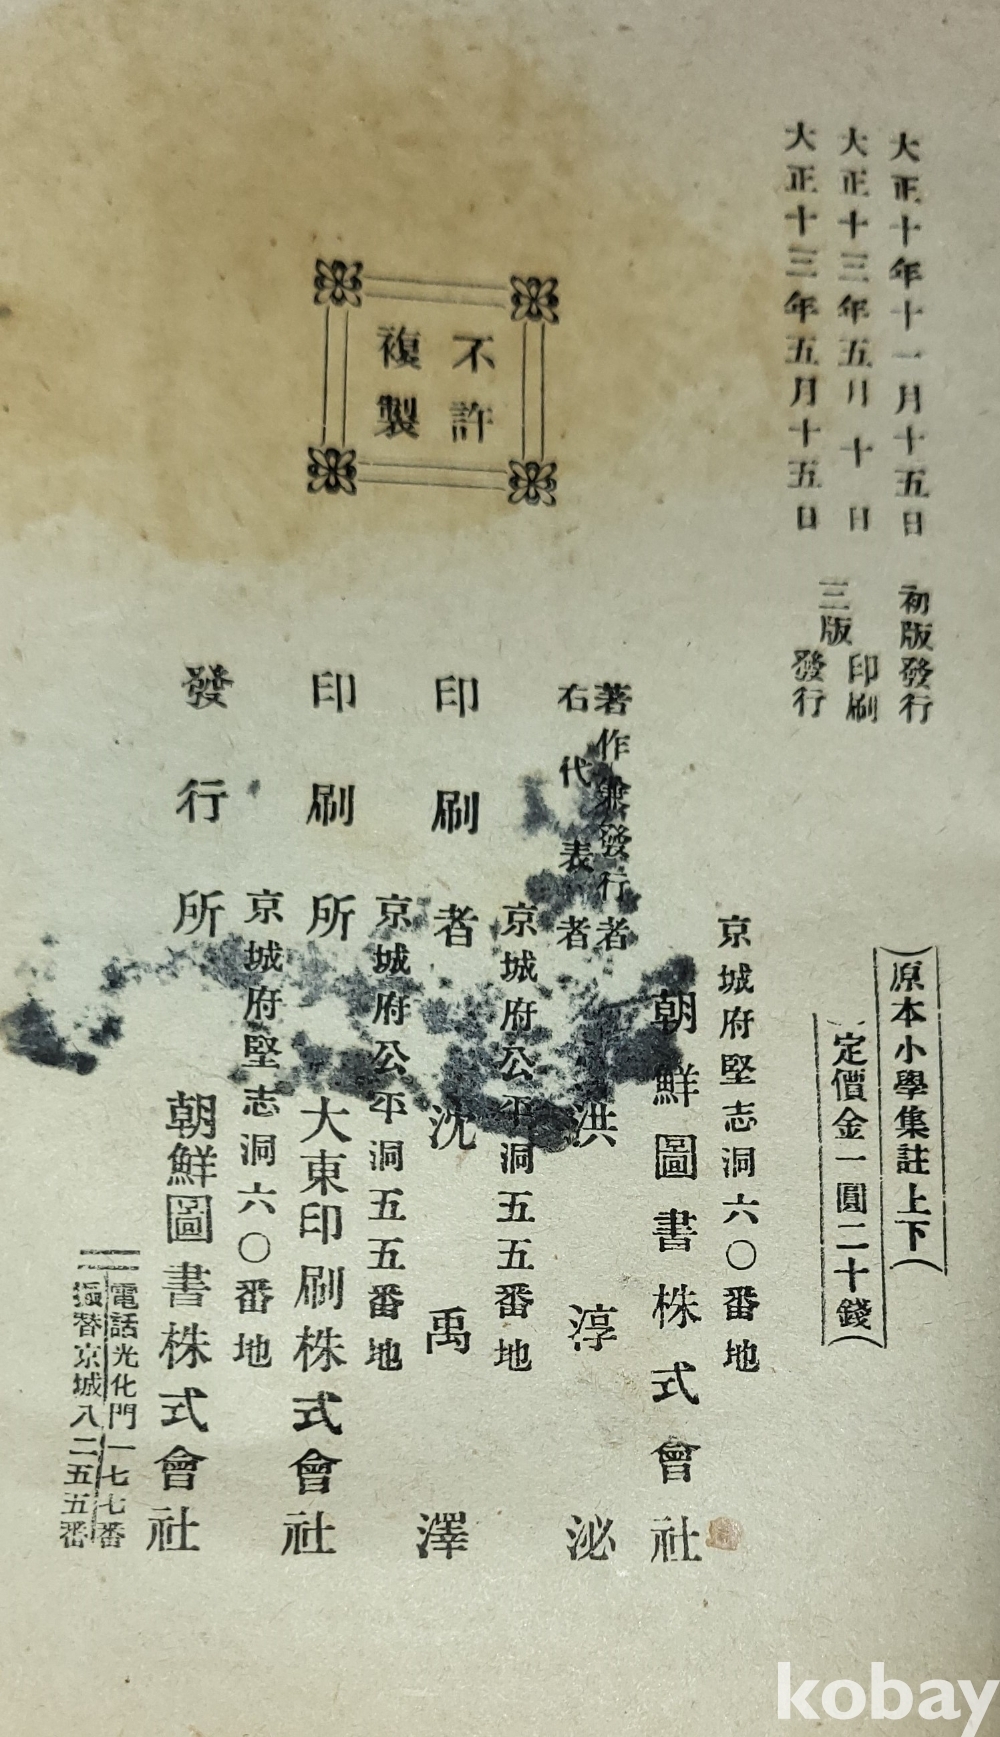 大正十年十一月十五日 初版發行
大正十三年五月十日 三版印刷
大正十三年五月十五日 三版發行
原本小學集註上下
定價金一圓二十錢
不許
複製
京城府堅志洞六〇番地
著作兼發行者 朝鮮圖書株式會社
右代表者 洪淳泌
京城府公平洞五五番地
印刷者 沈禹澤
京城府公平洞五五番地
印刷所 大東印刷株式會社
京城府堅志洞六〇番地
發行所 朝鮮圖書株式會社
電話光化門一七七番
振替京城八二五五番
kobay